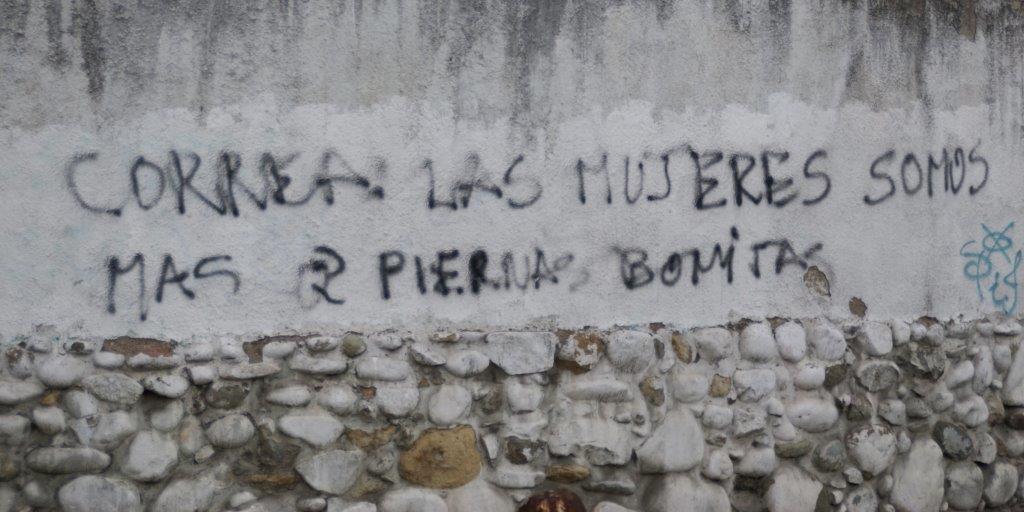 CORREA: LAS MUJERES SOMOS
MAS Q 2 PIERNAS BONITAS